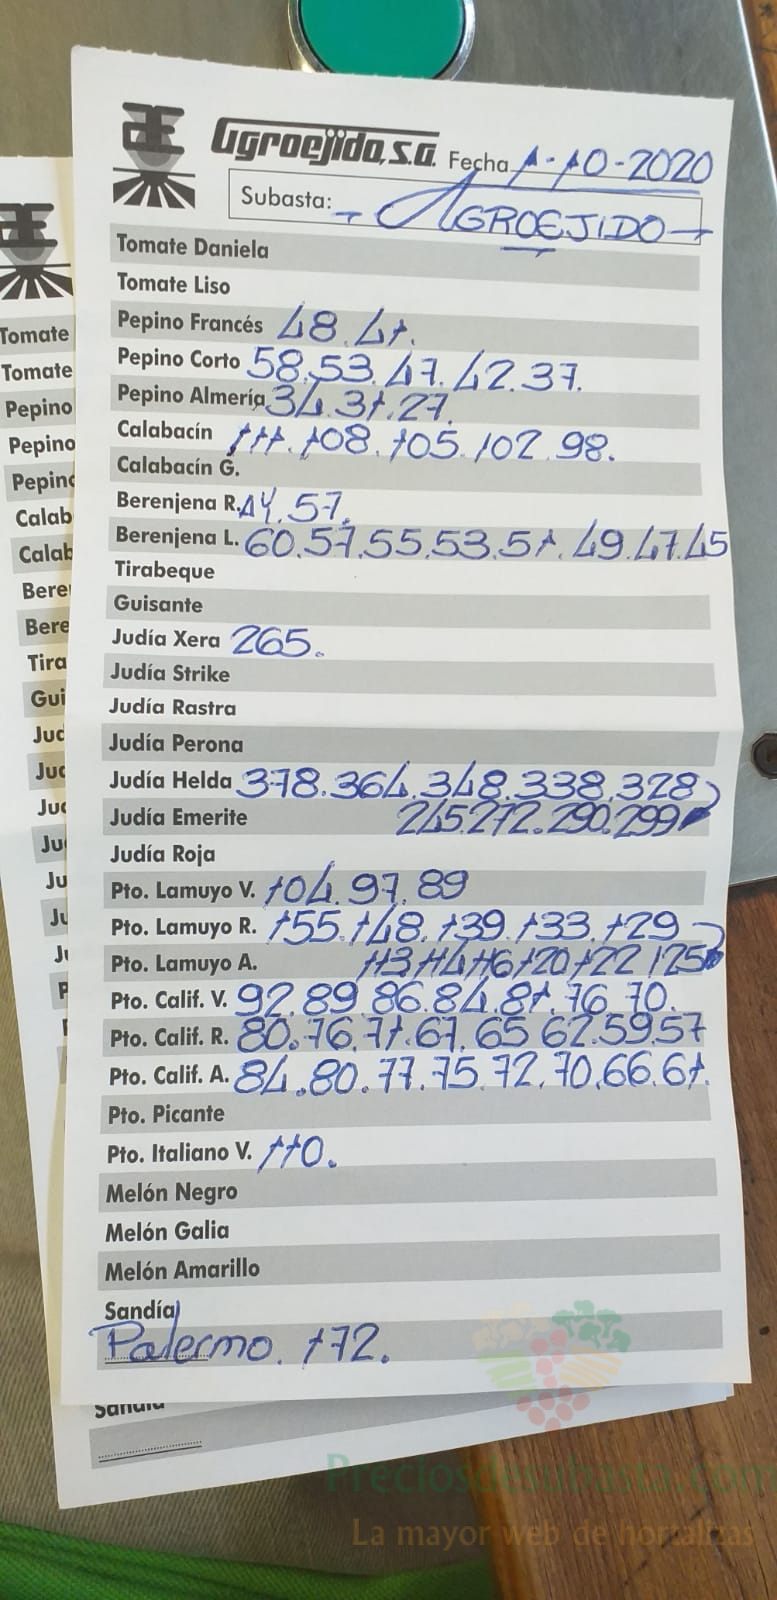 Agroejido, S.A. Fecha 1-10-2020
Subasta: - AGROEJIDO -
Tomate Daniela
Tomate Liso
Pepino Francés 48. 41.
Pepino Corto 58. 53. 47. 42. 37.
Pepino Almería 34. 31. 27.
Calabacín 111. 108. 105. 102. 98.
Calabacín G.
Berenjena R. 57.
Berenjena L. 60. 57. 55. 53. 51. 49. 47. 45
Tirabeque
Guisante
Judía Xera 265.
Judía Strike
Judía Rastra
Judía Perona
Judía Helda 378. 364. 348. 338. 328
Judía Emerite 245. 272. 290. 299
Judía Roja
Pto. Lamuyo V. 104. 97. 89
Pto. Lamuyo R. 155. 148. 139. 133. 129
Pto. Lamuyo A. 113 114 116 120 122 125
Pto. Calif. V. 92. 89. 86. 84. 81. 76. 70.
Pto. Calif. R. 80. 76. 71. 67. 65 62. 59. 57
Pto. Calif. A. 84. 80. 77. 75. 72. 70. 66. 61.
Pto. Picante
Pto. Italiano V. 110.
Melón Negro
Melón Galia
Melón Amarillo
Sandía
Palermo. 172.
Tomate
Tomate
Pepino
Pepino
Pepino
Calab
Calab
Bere
Bere
Tira
Gui
Jud
Jud
Jud
Ju
Ju
Ju
Sandía
Preciosdesubasta.com
La mayor web de hortalizas